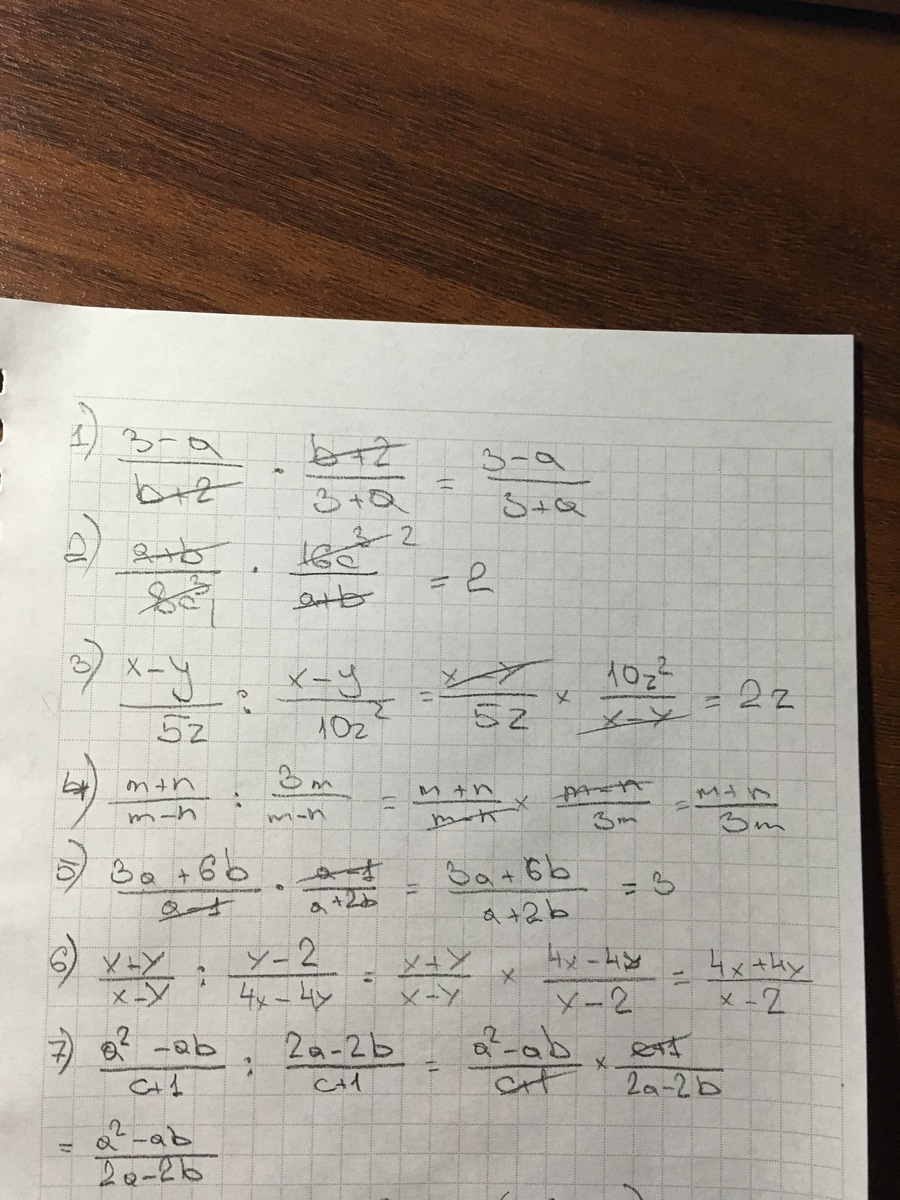 1) (3-a)/(b+2) · (b+2)/(3+a) = (3-a)/(3+a)
2) (a+b)/(8c³) · (16c³)/(a+b) = 2
3) (x-y)/(5z) : (x-y)/(10z²) = (x-y)/(5z) × (10z²)/(x-y) = 2z
4) (m+n)/(m-n) : (3m)/(m-n) = (m+n)/(m-n) × (m-n)/(3m) = (m+n)/(3m)
5) (3a+6b)/(a-1) · (a-1)/(a+2b) = (3a+6b)/(a+2b) = 3
6) (x+y)/(x-y) : (y-2)/(4x-4y) = (x+y)/(x-y) × (4x-4y)/(y-2) = (4x+4y)/(x-2)
7) (a²-ab)/(c+1) : (2a-2b)/(c+1) = (a²-ab)/(c+1) × (c+1)/(2a-2b)
= (a²-ab)/(2a-2b)